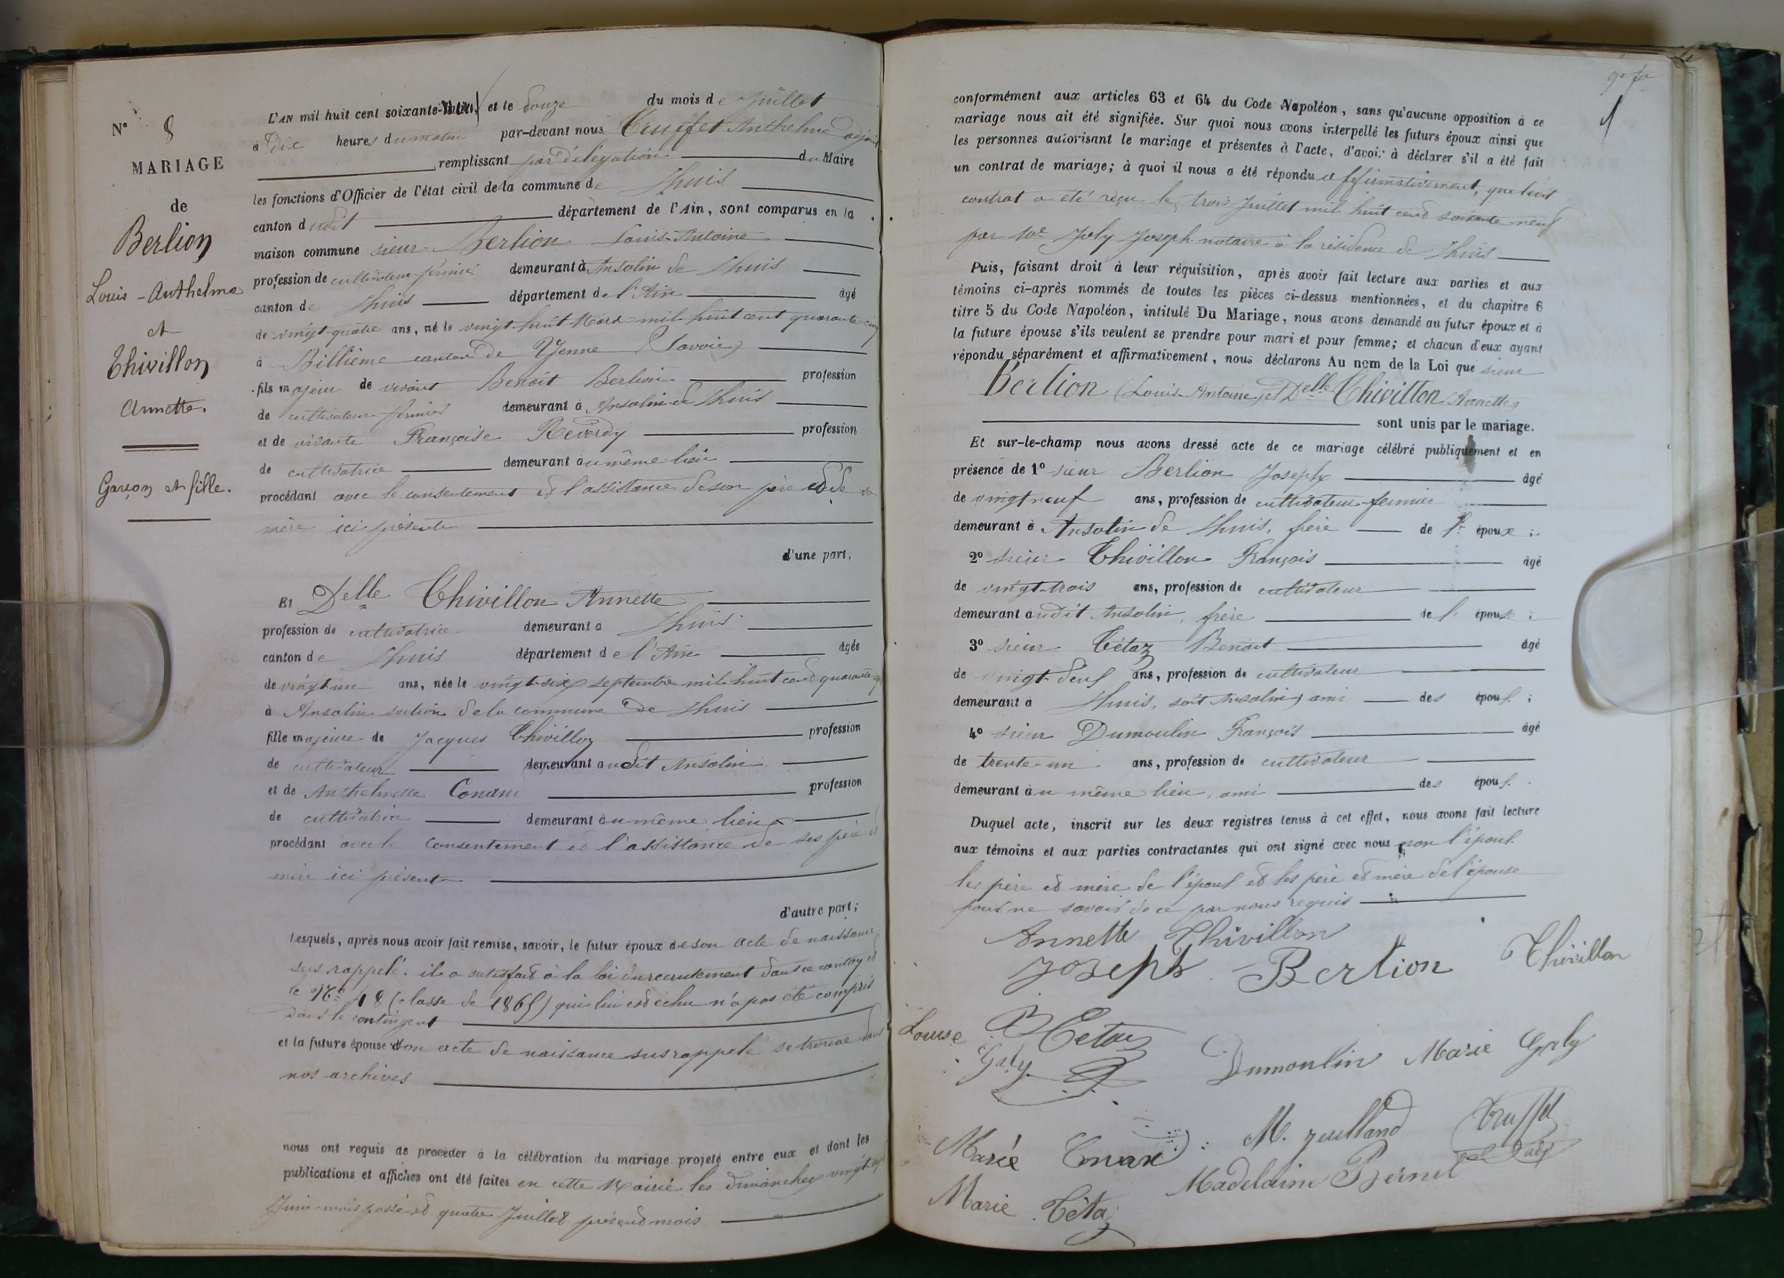 N° 8
MARIAGE
de
Berlion
Louis-Anthelme
et
Thivillon
Annette.
Garçon et fille.
L'AN mil huit cent soixante- et le douze du mois de Juillet
à dix heures du matin par-devant nous Truffet Anthelme adjoint
remplissant par délégation du Maire
les fonctions d'Officier de l'état civil de la commune de Lhuis
canton dudit département de l'Ain, sont comparus en la
maison commune sieur Berlion Louis-Antoine
profession de cultivateur fermier demeurant à Ansolin de Lhuis
canton de Lhuis département de l'Ain âgé
de vingt-quatre ans, né le vingt-huit Mars mil huit cent quarante cinq
à Billième canton de Yenne (Savoie)
fils majeur de vivant Benoît Berlion profession
de cultivateur fermier demeurant à Ansolin de Lhuis
et de vivante Françoise Reverdy profession
de cultivatrice demeurant au même lieu
procédant avec le consentement et l'assistance de son père et de sa
mère ici présents
d'une part,
Et Delle Thivillon Annette
profession de cultivatrice demeurant à Lhuis
canton de Lhuis département de l'Ain âgée
de vingt un ans, née le vingt-six septembre mil huit cent quarante
à Ansolin section de la commune de Lhuis
fille majeure de Jacques Thivillon profession
de cultivateur demeurant audit Ansolin
et de Anthelmette Conand profession
de cultivatrice demeurant au même lieu
procédant avec le consentement et l'assistance de ses père et
mère ici présents
d'autre part;
Lesquels, après nous avoir fait remise, savoir, le futur époux de son acte de naissance
sus rappelé; il a satisfait à la loi du recrutement dans ce canton et
le No 18 (classe de 1865) qui lui est échu n'a pas été compris
dans le contingent
et la future épouse son acte de naissance susrappelé se trouve dans
nos archives
nous ont requis de procéder à la célébration du mariage projeté entre eux et dont les
publications et affiches ont été faites en cette Mairie les dimanches vingt-sept
Juin mois passé et quatre Juillet présent mois
conformément aux articles 63 et 64 du Code Napoléon, sans qu'aucune opposition à ce
mariage nous ait été signifiée. Sur quoi nous avons interpellé les futurs époux ainsi que
les personnes autorisant le mariage et présentes à l'acte, d'avoir à déclarer s'il a été fait
un contrat de mariage; à quoi il nous a été répondu affirmativement, que leur
contrat a été reçu le trois Juillet mil huit cent soixante neuf
par Me Joly Joseph notaire à la résidence de Lhuis
Puis, faisant droit à leur réquisition, après avoir fait lecture aux parties et aux
témoins ci-après nommés de toutes les pièces ci-dessus mentionnées, et du chapitre 6
titre 5 du Code Napoléon, intitulé Du Mariage, nous avons demandé au futur époux et à
la future épouse s'ils veulent se prendre pour mari et pour femme; et chacun d'eux ayant
répondu séparément et affirmativement, nous déclarons Au nom de la Loi que sieur
Berlion (Louis-Antoine) et Delle Thivillon Annette
sont unis par le mariage.
Et sur-le-champ nous avons dressé acte de ce mariage célébré publiquement et en
présence de 1° sieur Berlion Joseph âgé
de vingt neuf ans, profession de cultivateur-fermier
demeurant à Ansolin de Lhuis, frère de l' époux;
2° sieur Thivillon François âgé
de vingt-trois ans, profession de cultivateur
demeurant audit Ansolin, frère de l' épouse;
3° sieur Tétaz Benoît âgé
de vingt-deux ans, profession de cultivateur
demeurant à Lhuis, soit Ansolin, ami des époux;
4° sieur Dumoulin François âgé
de trente-un ans, profession de cultivateur
demeurant au même lieu, ami des époux.
Duquel acte, inscrit sur les deux registres tenus à cet effet, nous avons fait lecture
aux témoins et aux parties contractantes qui ont signé avec nous non l'époux
les père et mère de l'époux et les père et mère de l'épouse
pour ne savoir de ce par nous requis
Annette Thivillon
Joseph Berlion Thivillon
Louise Galy B Tétaz
Dumoulin Marie Galy
Marie Conand M. Juilland Truffet
Madeldine
Marie Tétaz